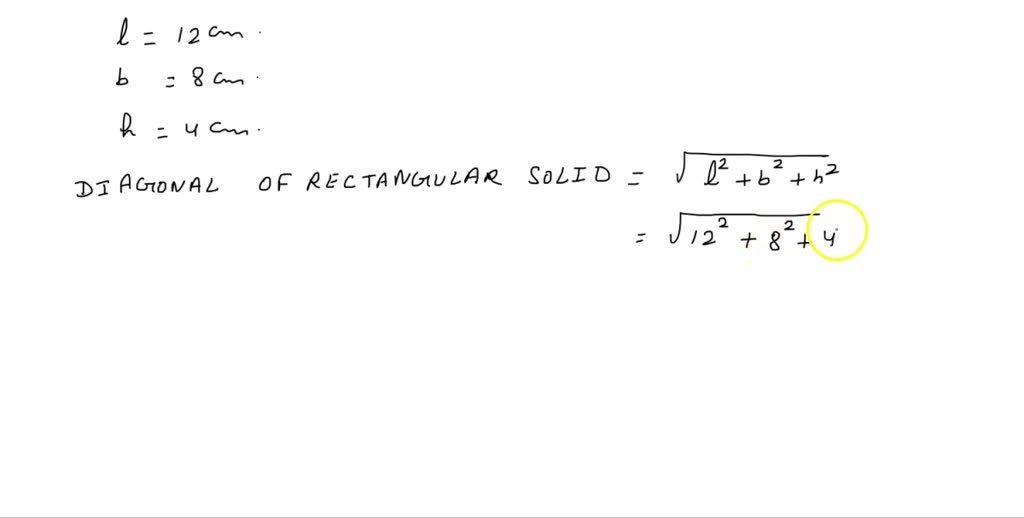 l = 12 cm.
b = 8 cm.
h = 4 cm.
DIAGONAL OF RECTANGULAR SOLID = √l² + b² + h²
= √12² + 8² + 4